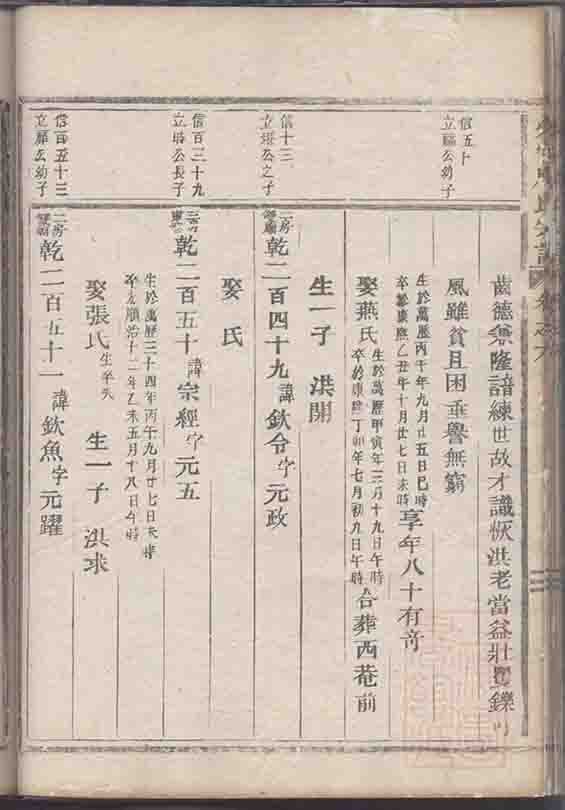 宗譜
齒德崇隆諳練世故才識恢洪老當益壯矍鑠
信五十
立福公幼子
風雖貧且困垂譽無窮
生於萬歷丙午年九月廿五日巳時
卒於康熙乙丑年十月廿七日未時
享年八十有奇
娶燕氏
生於萬歷甲寅年三月十九日午時
卒於康熙丁卯年七月初九日午時
合葬西菴前
生一子 洪開
信十三
立塔公之子
二房
乾二百四十九諱欽令字元政
娶 氏
信百三十九
立塔公長子
乾二百五十諱宗經字元五
生於萬歷三十四年丙午九月廿七日 時
卒於順治十二年乙未五月十八日午時
娶張氏生卒失 生一子 洪求
信百五十三
立福公幼子
二房
乾二百五十一諱欽魚字元躍